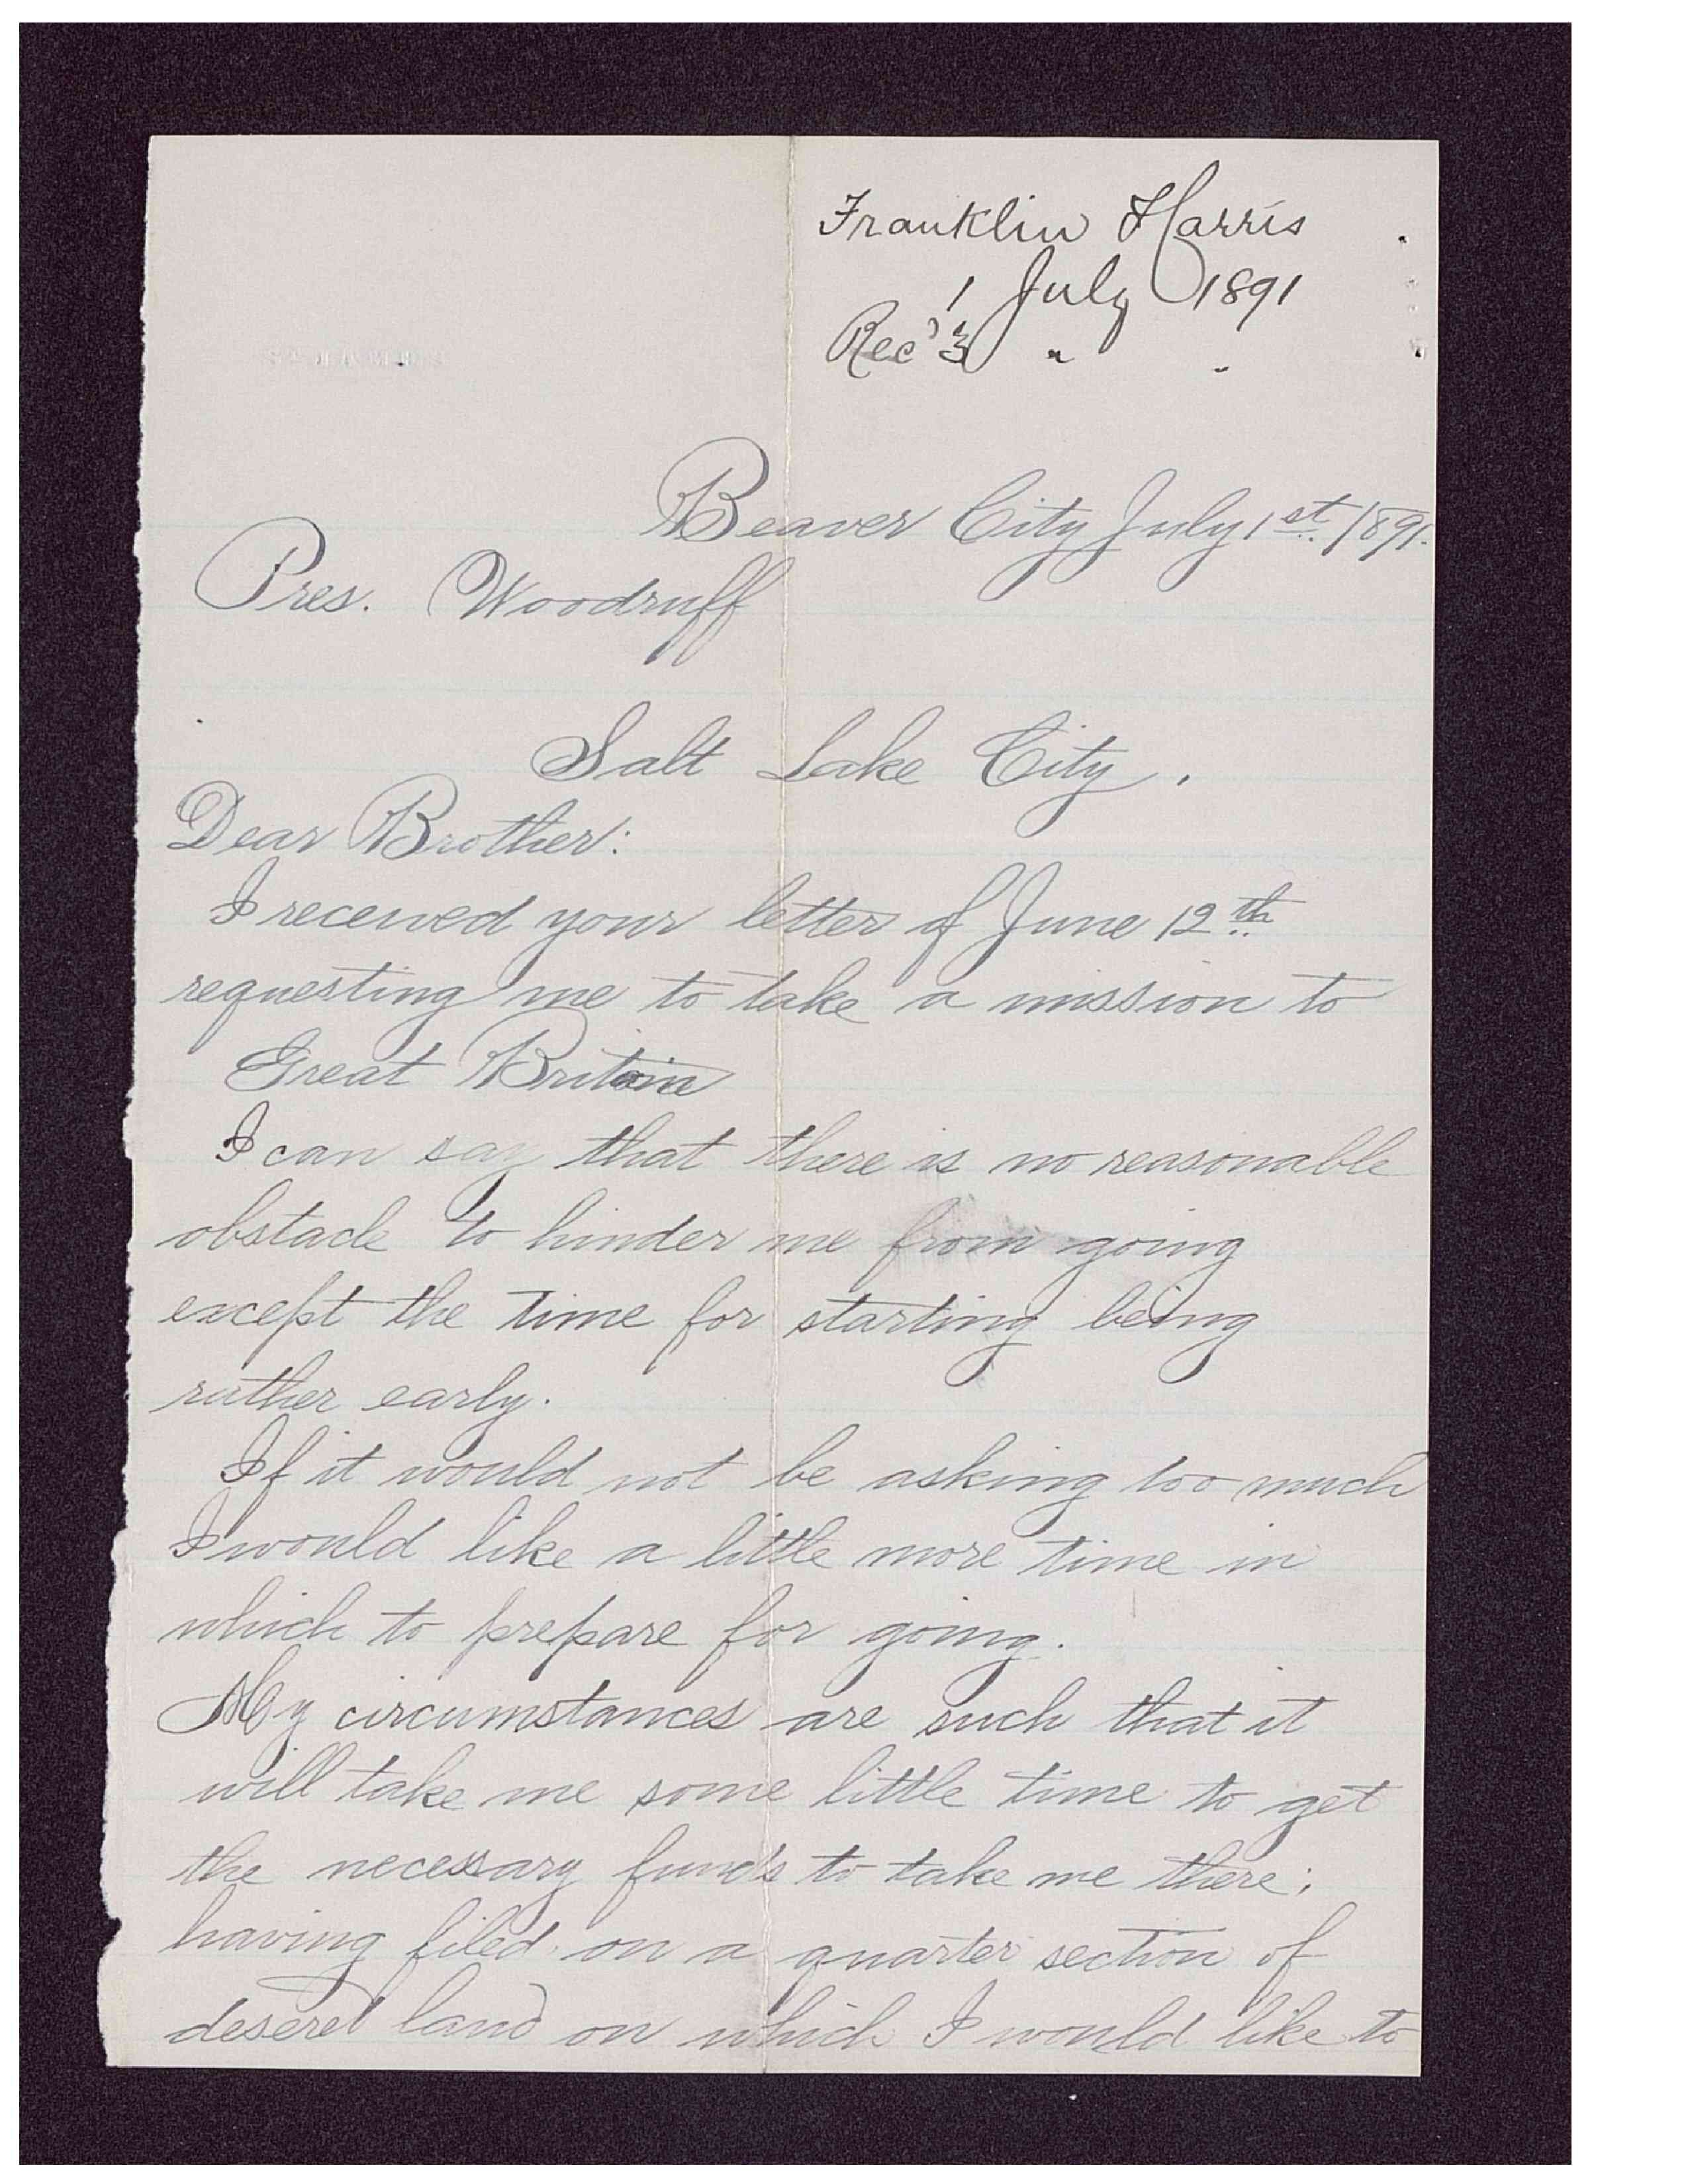 Franklin Harris
1 July 1891
Rec'd 3 " "
Beaver City July 1st. 1891.
Pres. Woodruff
Salt Lake City.
Dear Brother:
I received your letter of June 12th
requesting me to take a mission to
Great Britain
I can say that there is no reasonable
obstacle to hinder me from going
except the time for starting being
rather early.
If it would not be asking too much
I would like a little more time in
which to prepare for going.
My circumstances are such that it
will take me some little time to get
the necessary funds to take me there;
having filed on a quarter section of
deseret land on which I would like to